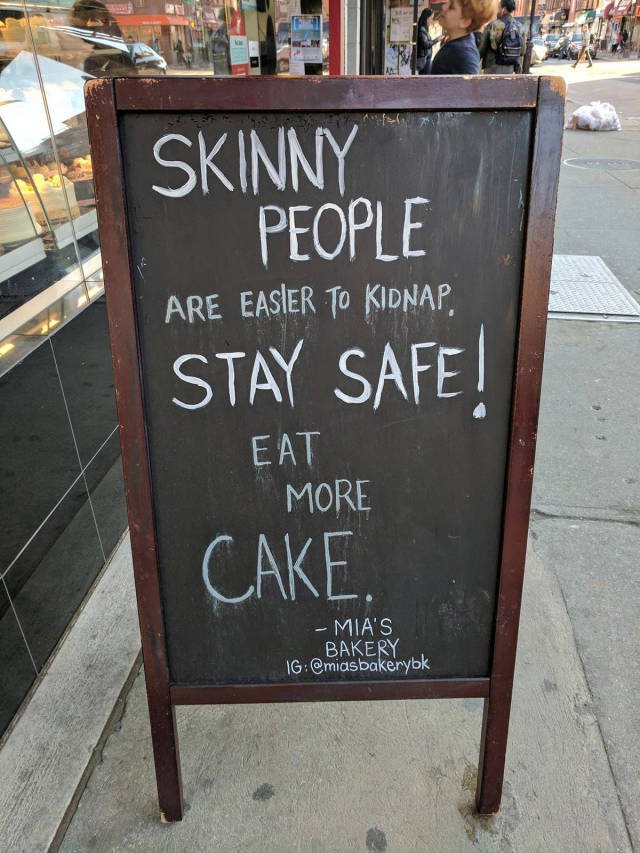 SKINNY
PEOPLE
ARE EASIER TO KIDNAP.
STAY SAFE!
EAT
MORE
CAKE.
- MIA'S
BAKERY
IG: @miasbakerybk